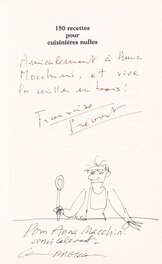 150 recettes
pour
cuisinières nulles
Amicalement à Anna
Macchini, et vive
la cuiller en bois !
Françoise
Prévost
Pour Anna Macchini
amicalement